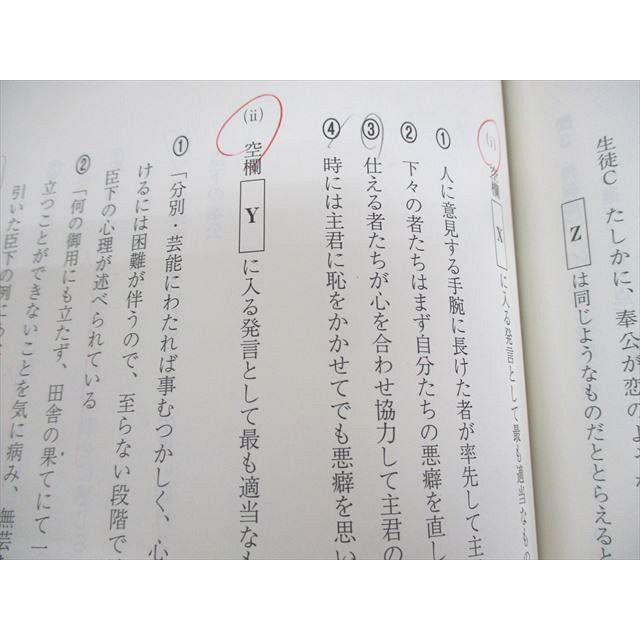 生徒C　たしかに、奉公が恋の
Z は同じようなものだととらえると
(i) 空欄 X に入る発言として最も適当なもの
① 人に意見する手腕に長けた者が率先して主
② 下々の者たちはまず自分たちの悪癖を直し
③ 仕える者たちが心を合わせ協力して主君の
④ 時には主君に恥をかかせてでも悪癖を思い
(ii) 空欄 Y に入る発言として最も適当なも
① 「分別・芸能にわたれば事むつかしく、心
けるには困難が伴うので、至らない段階で
臣下の心理が述べられている
② 「何の御用にも立たず、田舎の果てにて一
立つことができないことを気に病み、無芸
引いた臣下の例に